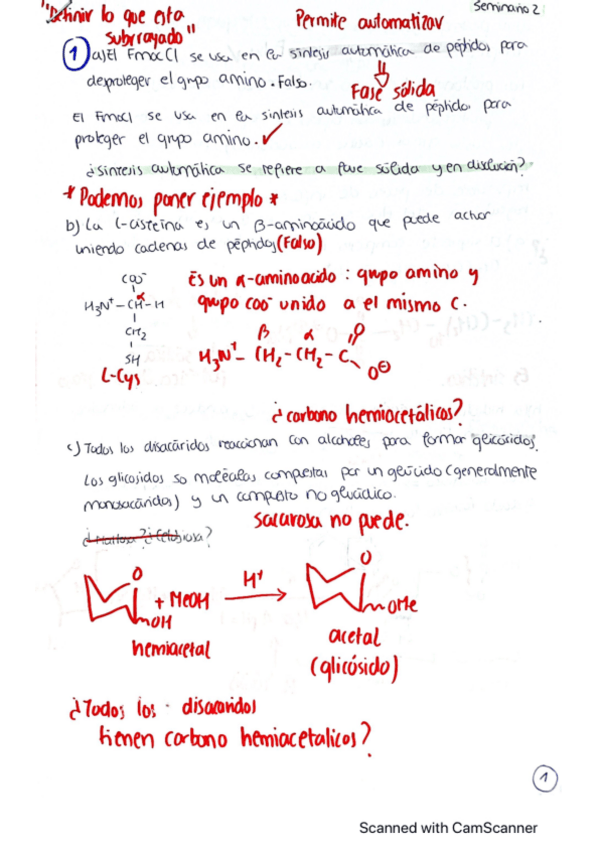 "Definir lo que esta
subrrayado"
Permite automatizar
Seminario 2
1 a) El FmocCl se usa en la sintesis automática de péptidos para
desproteger el grupo amino. Falso.
Fase sólida
El FmocCl se usa en la sintesis automática de péptidos para
proteger el grupo amino. ✓
¿Sintesis automática se refiere a fase sólida y en disolución?
* Podemos poner ejemplo *
b) La L-cisteína es un β-aminoácido que puede actuar
uniendo cadenas de péptidos (Falso)
Es un α-aminoacido : grupo amino y
grupo coo⁻ unido a el mismo C.
COO⁻
α
H₃N⁺-CH-H
CH₂
SH
L-Cys
β α O
H₃N⁺-CH₂-CH₂-C
O⊖
¿carbono hemiacetálicos?
c) Todos los disacáridos reaccionan con alcoholes para formar glicósidos.
Los glicosidos so moléculas compuestas por un glúcido (generalmente
monosacáridos) y un compuesto no glucídico.
sacarosa no puede.
¿Maltosa? ¿Celobiosa?
O
OH
+ MeOH
H⁺
O
OMe
hemiacetal
acetal
(glicósido)
¿Todos los disacaridos
tienen carbono hemiacetalicos?
1
Scanned with CamScanner